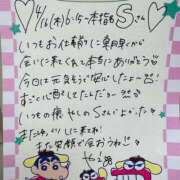 4/16(木)6:15〜本指名Sさん
いつもお仕事前に朝早くから
会いに来てくれて本当にありがとう
今日は元気そうで安心したよー
すごく心配してたんだよー
いつもの優しいSさんでよかった
またゆっくりしに来てね!
また笑顔で会おうね♡